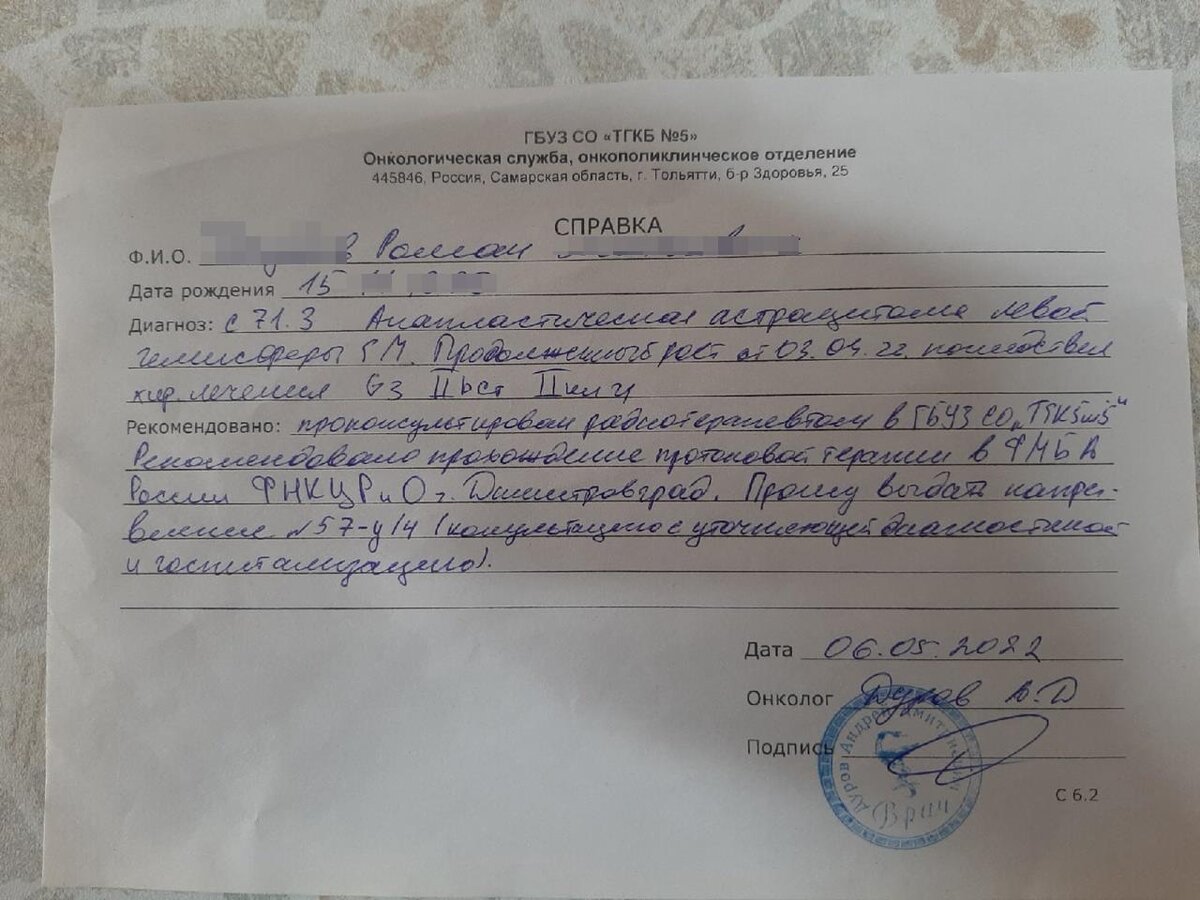 ГБУЗ СО «ТГКБ №5»
Онкологическая служба, онкополиклиническое отделение
445846, Россия, Самарская область, г. Тольятти, б-р Здоровья, 25
СПРАВКА
Ф.И.О. Роман
Дата рождения 15
Диагноз: С 71.3 Анапластическая астроцитома левой
гемисферы ГМ. Продолженный рост от 03.04.22.
хир. лечения G3 II ст II кл гр
Рекомендовано: проконсультирован радиотерапевтом в ГБУЗ СО „ТГКБ№5“
Рекомендовано прохождение протоновой терапии в ФМБА
России ФНКЦРиО г. Димитровград. Прошу выдать направ-
вление №57-у/4 (консультацию с уточняющей диагностикой
и госпитализацию).
Дата 06.05.2022
Онколог Дуров А.Д
Подпись
Дуров Андрей Дмитриевич
Врач
С 6.2